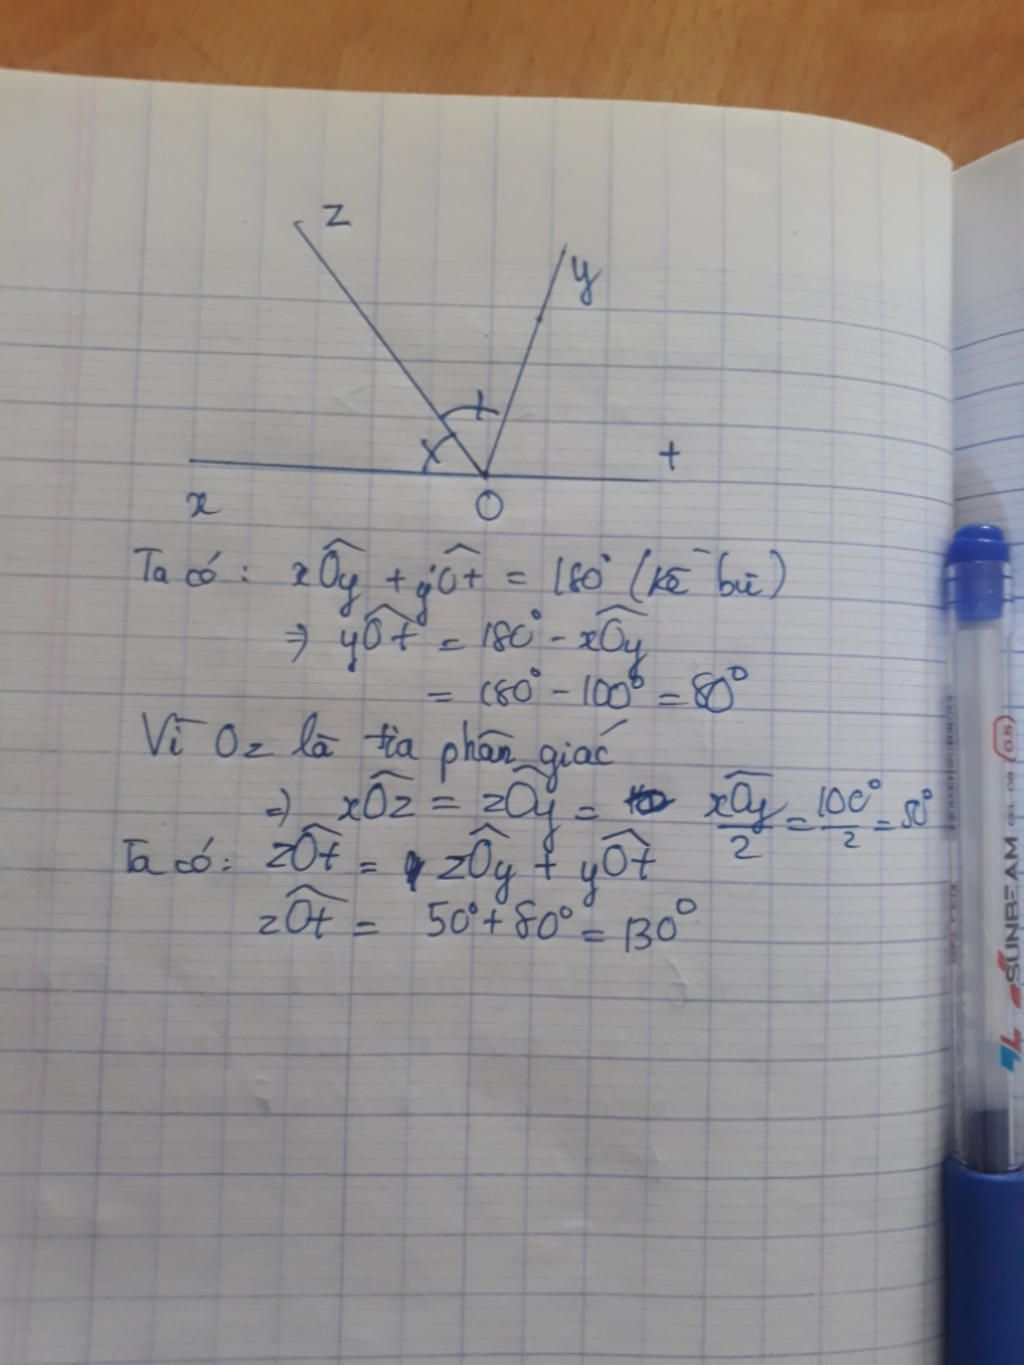 z
y
x
O
t
Ta có: xÔy + yÔt = 180° (kề bù)
⇒ yÔt = 180° - xÔy
= 180° - 100° = 80°
Vì Oz là tia phân giác
⇒ xÔz = zÔy = xÔy/2 = 100°/2 = 50°
Ta có: zÔt = zÔy + yÔt
zÔt = 50° + 80° = 130°
SUNBEAM
0.5